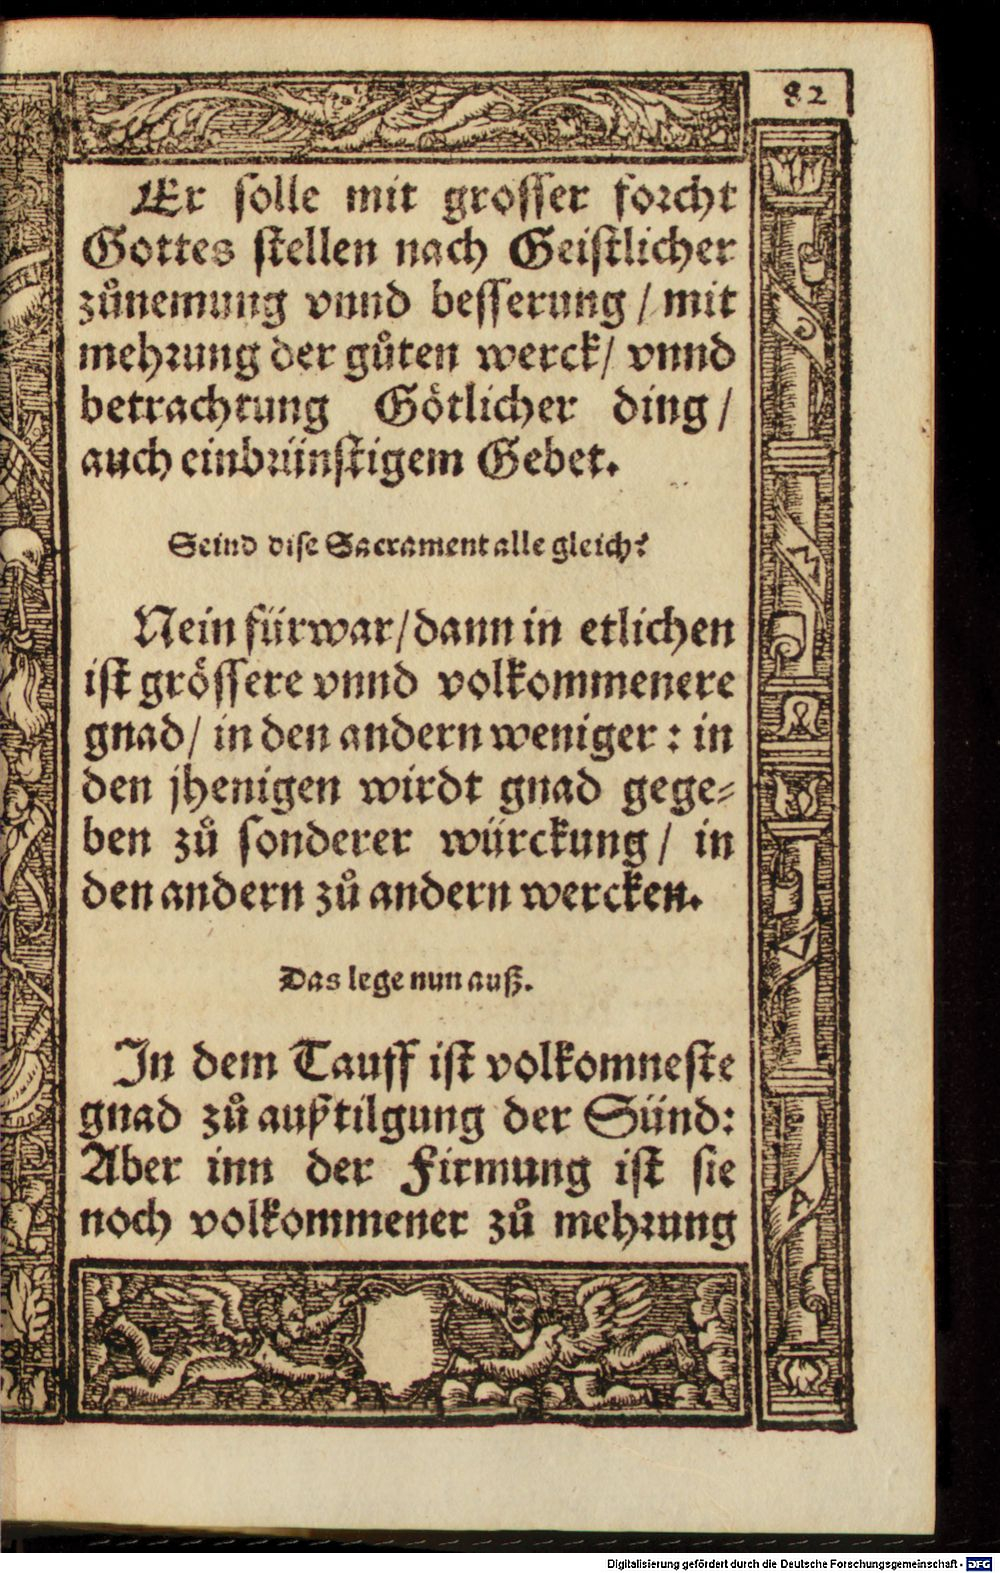 82
Er solle mit grosser forcht
Gottes stellen nach Geistlicher
zůnemung vnnd besserung / mit
mehrung der gůten werck / vnnd
betrachtung Götlicher ding /
auch einbrünstigem Gebet.
Seind dise Sacrament alle gleich?
Nein fürwar / dann in etlichen
ist grössere vnnd volkommenere
gnad / in den andern weniger : in
den jhenigen wirdt gnad gege-
ben zů sonderer würckung / in
den andern zů andern wercken.
Das lege nun auß.
In dem Tauff ist volkomneste
gnad zů außtilgung der Sünd:
Aber inn der Firmung ist sie
noch volkommener zů mehrung
Digitalisierung gefördert durch die Deutsche Forschungsgemeinschaft - DFG